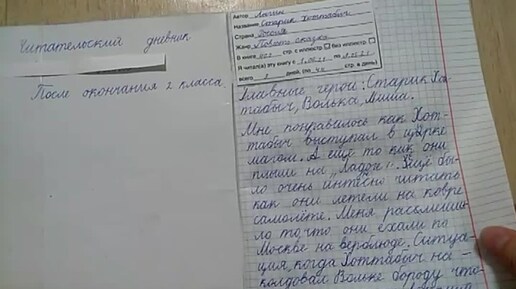 Читательский дневник
После окончания 2 класса
Автор Лагин
Название Старик Хоттабыч
Страна Россия
Жанр Повесть сказка
В книге стр. с иллюстр. без иллюстр.
Я читал(а) эту книгу с по
всего дней. (по стр. в день)
Главные герои: Старик Хот-
табыч, Волька, Миша.
Мне понравилось как Хот-
табыч выступал в цырке
магом. А ещё то как они
плыли на „Ладоге". Ещё бы-
ло очень интесно читать
как они летели на ковре
самолёте. Меня рассмеши-
ло то, что они ехали по
Москве на верблюде. Ситуа-
ция, когда Хоттабыч на-
колдовал Вольке бороду что